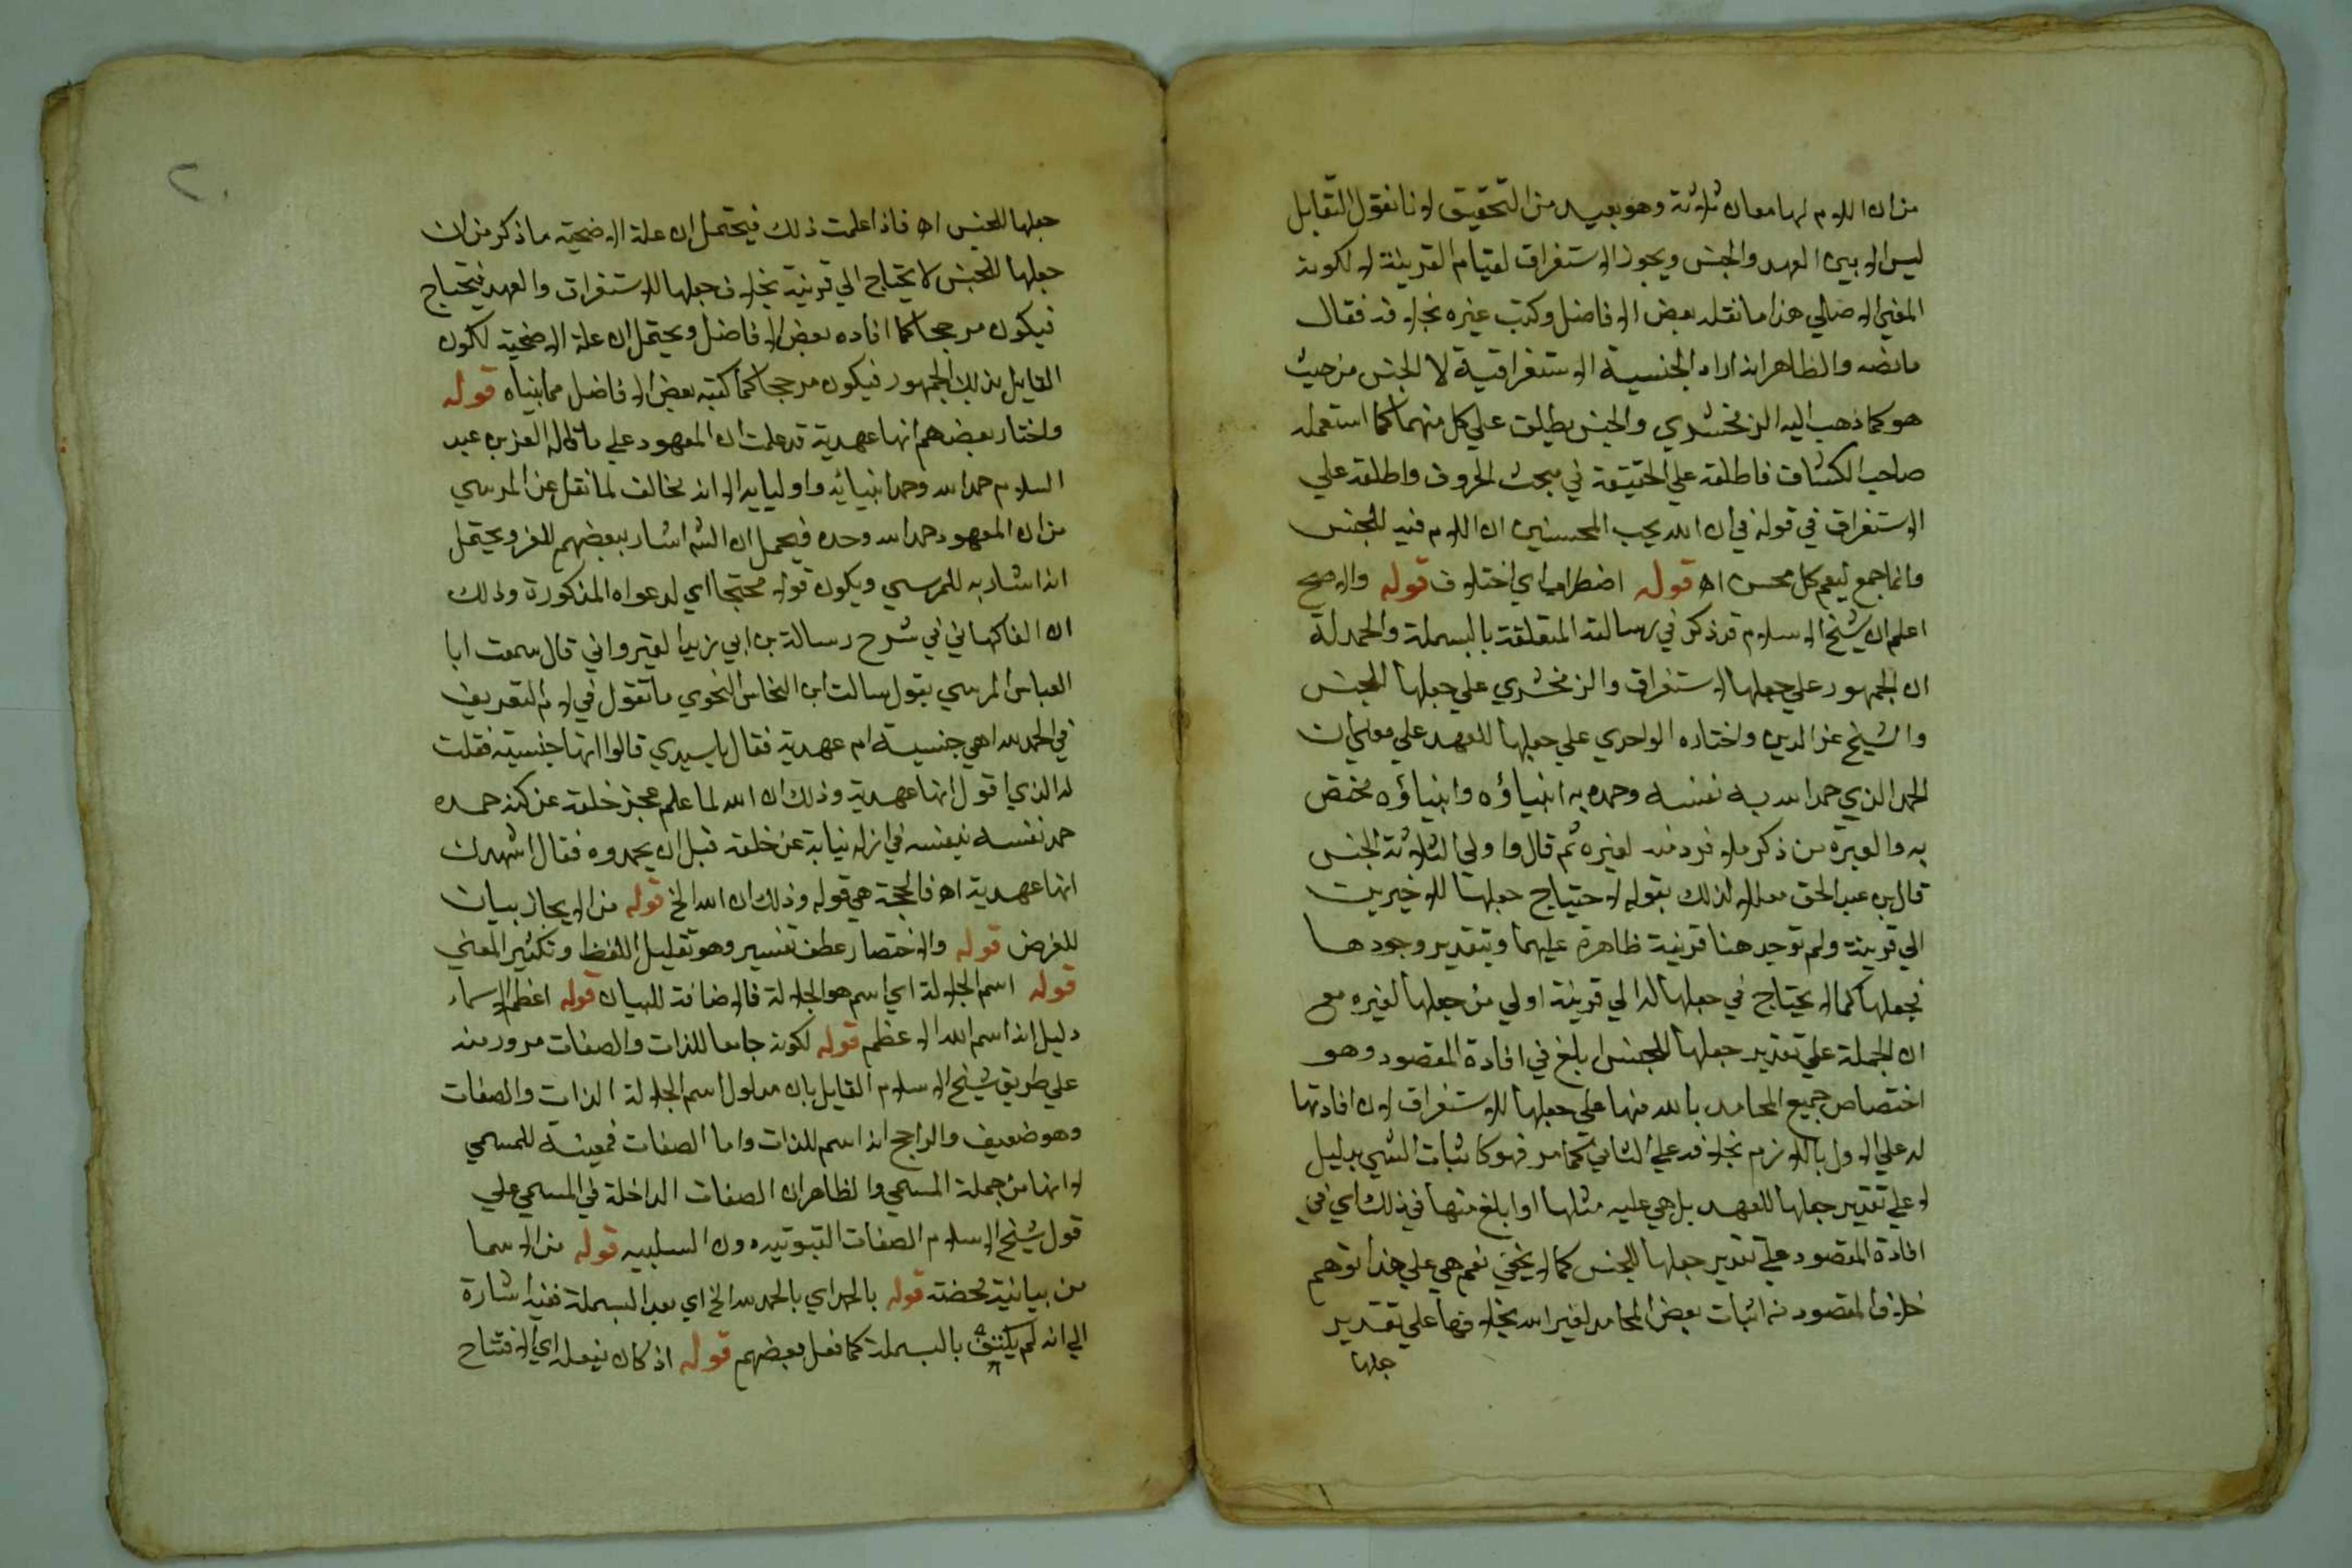 من ان اللام لها معان ثلاثة وهو بعيد من التحقيق لانا نقول التقابل
ليس الا بين العهد والجنس ويجوز الاستغراق لقيام القرينة لا لكونه
المعنى الاصلي هذا ما نقله بعض الافاضل وكتب غيره بخلافه فقال
ما نصه والظاهر انه اراد الجنسية الاستغراقية لا الجنس من حيث
هو كما ذهب اليه الزمخشري والجنس يطلق علي كل منهما كما استعمله
صاحب الكشاف فاطلقه علي الحقيقة في مبحث الحروف واطلقه علي
الاستغراق في قوله في ان الله يحب المحسنين ان اللام فيه للجنس
وانما جمع ليعم كل محسن اه قوله اضطراب اي اختلاف قوله والاصح
اعلم ان شيخ الاسلام قد ذكر في رسالته المتعلقة بالبسملة والحمدلة
ان الجمهور علي جعلها لاستغراق والزمخشري علي جعلها للجنس
والشيخ عز الدين واختاره الواحدي علي جعلها للعهد علي معني ان
الحمد الذي حمد الله به نفسه وحمده به انبياؤه وانبياؤه مختص
به والعبرة من ذكر فلا فرد منه لغيره ثم قال واولي الثلاثة الجنس
قال بن عبد الحق معللا لذلك بقوله لاحتياج جعلها للاخيرين
الي قرينة ولم توجد هنا قرينة ظاهرة عليهما وبتقدير وجودها
فجعلها كما لا يحتاج في جعلها له الي قرينة اولي من جعلها لغيره مع
ان الجملة علي تقدير جعلها للجنس ابلغ في افادة المقصود وهو
اختصاص جميع المحامد بالله منها علي جعلها للاستغراق لان افادتها
له علي الاول باللازم بخلافه علي الثاني كما مر فهو كاثبات الشي بدليل
لا علي تقدير جعلها للعهد بل هي عليه مثلها او ابلغ منها في ذلك اي في
افادة المقصود علي تقدير جعلها للجنس كما لا يخفي نعم هي علي هذا توهم
خلاف المقصود من اثبات بعض المحامد لغير الله بخلافها علي تقدير
جعلها
٢٠
جعلها للجنس اه فاذا علمت ذلك فيحتمل ان علة الاصحية ما ذكر من ان
جعلها للجنس لا يحتاج الي قرينة بخلاف جعلها للاستغراق والعهد فيحتاج
فيكون مرجحا كما افاده بعض الافاضل ويحتمل ان علة الاصحية لكون
القايل بذلك الجمهور فيكون مرجحا كما كتبه بعض الافاضل مما بنياه قوله
واختار بعضهم انها عهدية قد علمت ان المعهود علي ما قاله العز بن عبد
السلام حمد الله وحمد انبيائه واوليايه الا انه يخالف لما نقل عن المرسي
من ان المعهود حمد الله وحده فيحمل ان الشم اشار ببعضهم للعز ويحتمل
انه اشار به للمرسي ويكون قوله محتجا اي لدعواه المذكورة وذلك
ان الفاكهاني في شرح رسالة بن ابي زيد القيرواني قال سمعت ابا
العباس المرسي يقول سالت ابن النحاس النحوي ما تقول في لام التعريف
في الحمد لله اهي جنسية ام عهدية فقال يا سيدي قالوا انها جنسية فقلت
له الذي اقول انها عهدية وذلك ان الله لما علم عجز خلقه عن كنه حمده
حمد نفسه بنفسه في ازله نيابة عن خلقه قبل ان يحمدوه فقال اشهدك
انها عهدية اه فالحجة هي قوله وذلك ان الله الخ قوله من الايجاز بيان
للغرض قوله والاختصار عطف تفسير وهو تقليل اللفظ وتكثير المعني
قوله اسم الجلالة اي اسم هو الجلالة فالاضافة للبيان قوله اعظم الاسماء
دليل انه اسم الله الاعظم قوله لكونه جامعا للذات والصفات مرور منه
علي طريق شيخ الاسلام القايل بان مدلول اسم الجلالة الذات والصفات
وهو ضعيف والراجح انه اسم للذات واما الصفات فمعينة للمسمي
لا انها من جملة المسمي والظاهر ان الصفات الداخلة في المسمي علي
قول شيخ الاسلام الصفات الثبوتيه دون السلبيه قوله من الاسما
من بيانية محضة قوله بالحمد اي بالحمد لله الخ اي بعد البسملة ففيه اشارة
الي انه لم يكتف بالبسملة كما فعل بعضهم قوله اذ كان نيعله اي الافتتاح